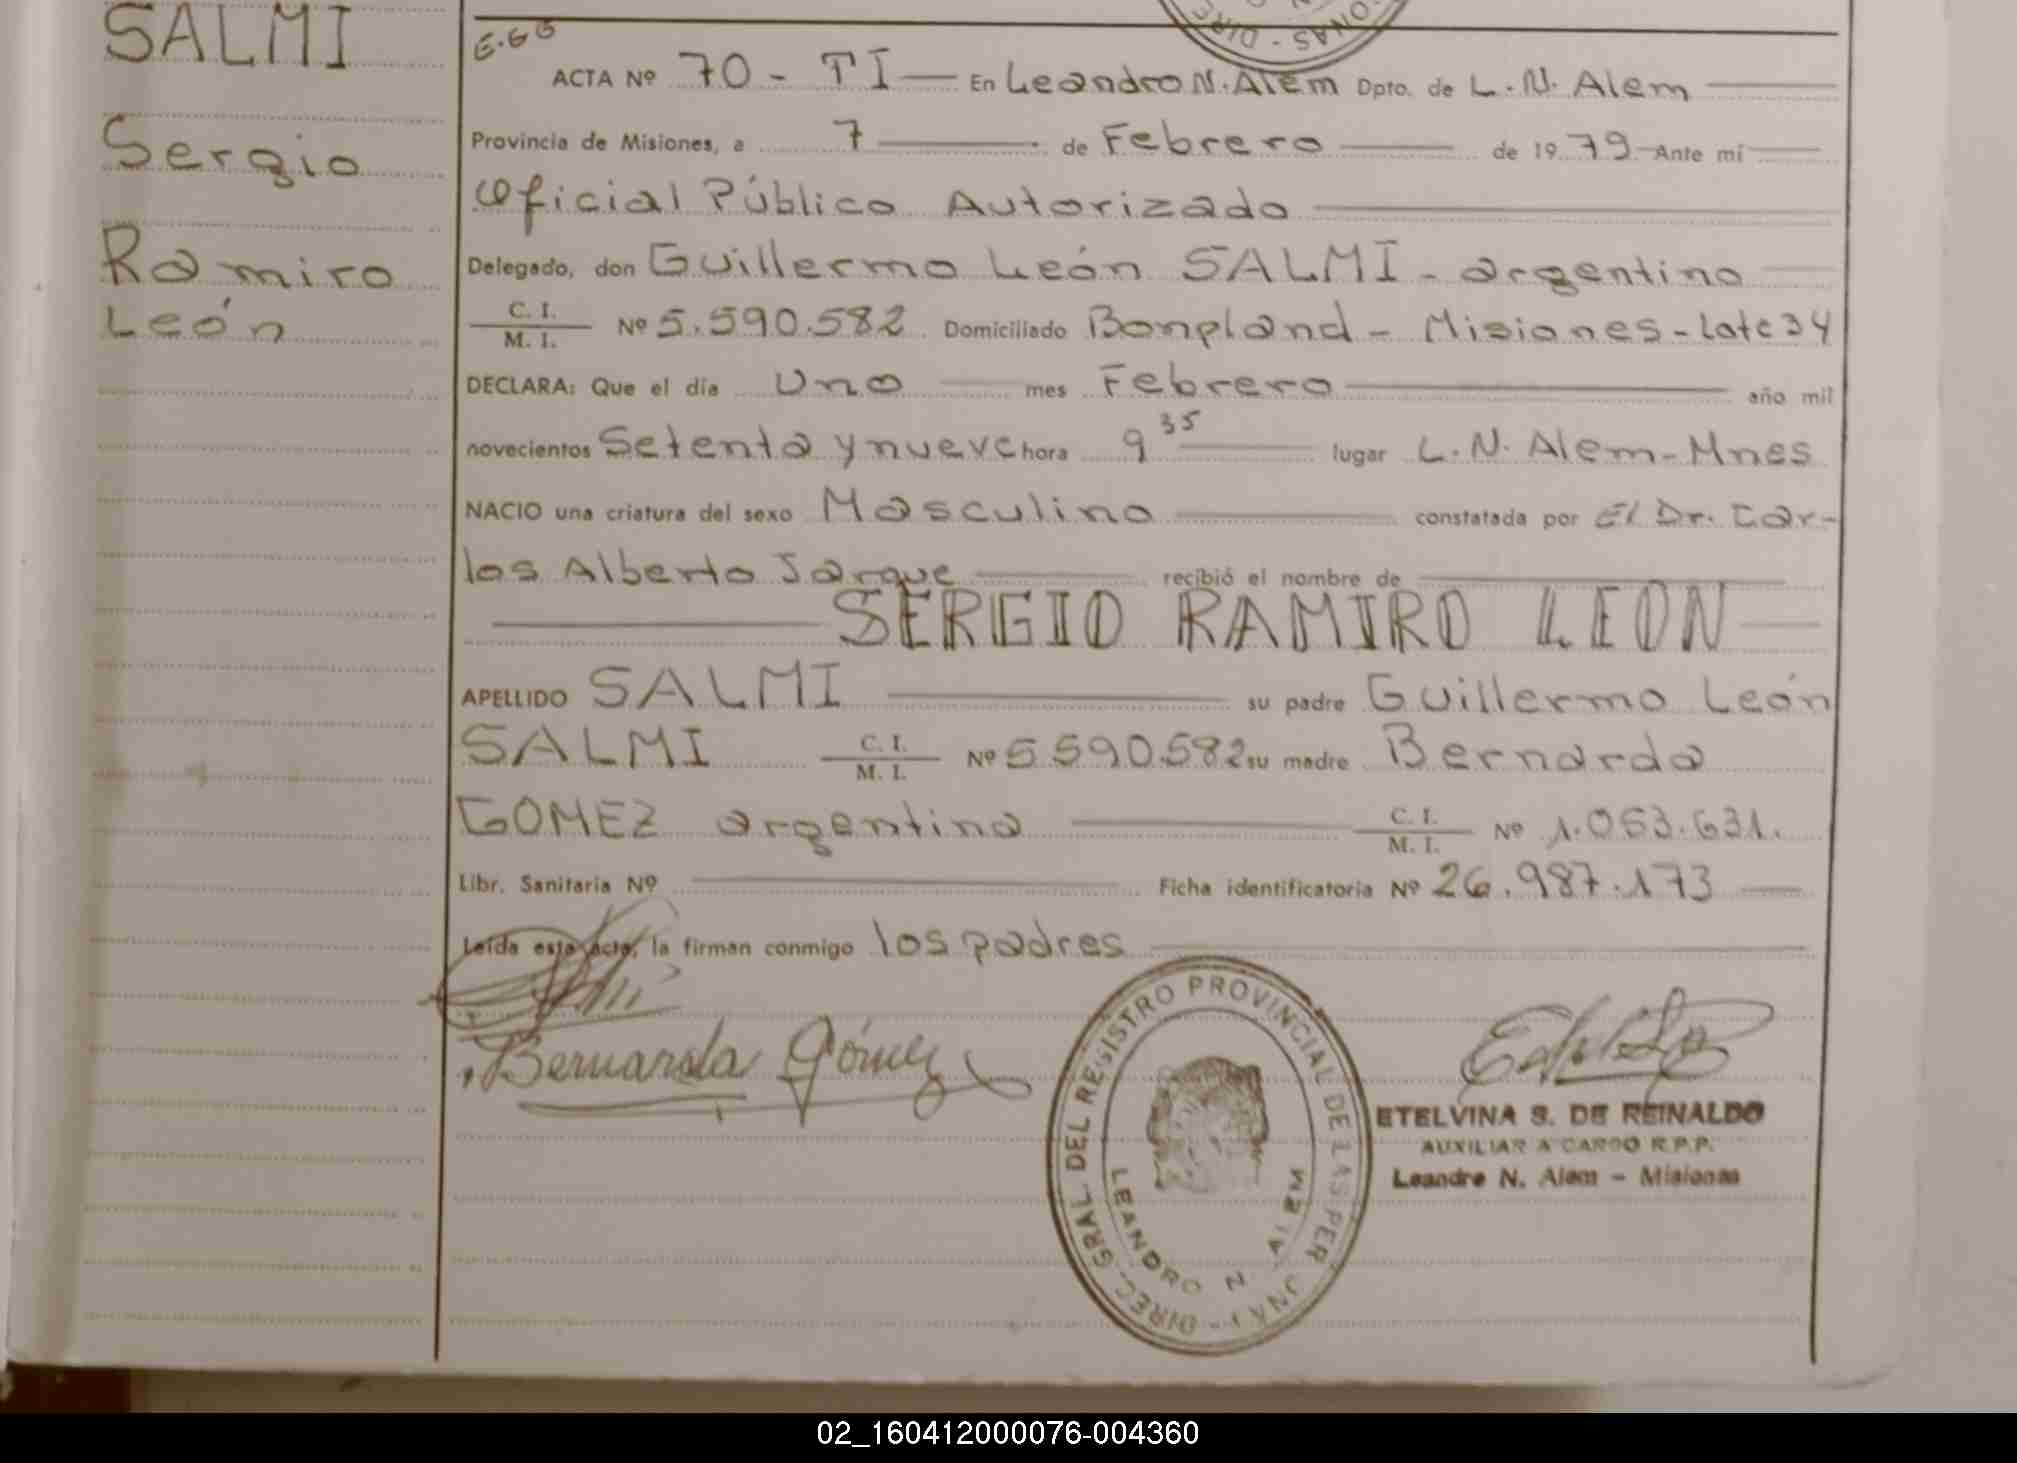 SALMI
Sergio
Ramiro
León
E.GG
ACTA Nº 70 - TI En Leandro N. Alem Dpto. de L. N. Alem
Provincia de Misiones, a 7 de Febrero de 1979 Ante mí
Oficial Público Autorizado
Delegado, don Guillermo León SALMI - argentino
C. I.
M. I. Nº 5.590.582 Domiciliado Bonpland - Misiones - Lote 34
DECLARA: Que el día Uno mes Febrero año mil
novecientos Setenta y nueve hora 9 35 lugar L. N. Alem - Mnes
NACIO una criatura del sexo Masculino constatada por El Dr. Car-
los Alberto Jarque recibió el nombre de
SERGIO RAMIRO LEON
APELLIDO SALMI su padre Guillermo León
SALMI C. I. M. I. Nº 5.590.582 su madre Bernarda
GOMEZ argentina C. I. M. I. Nº 1.053.631.
Libr. Sanitaria Nº Ficha identificatoria Nº 26.987.173
Leída esta acta, la firman conmigo los padres
Bernarda Gómez
DIREC. GRAL DEL REGISTRO PROVINCIAL DE LAS PER
LEANDRO N. ALEM
ETELVINA S. DE REINALDO
AUXILIAR A CARGO R.P.P.
Leandro N. Alem - Misiones
02_160412000076-004360